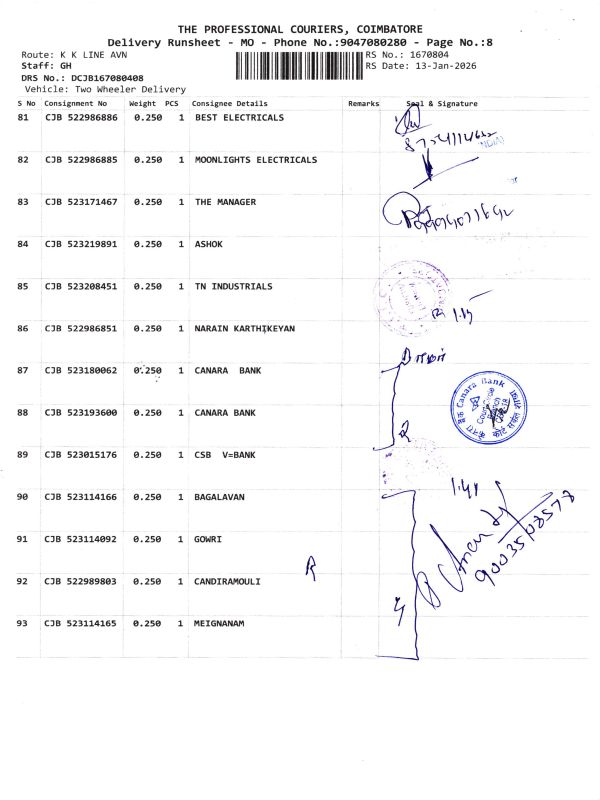 THE PROFESSIONAL COURIERS, COIMBATORE
Delivery Runsheet - MO - Phone No.:9047080280 - Page No.:8
Route: K K LINE AVN RS No.: 1670804
Staff: GH RS Date: 13-Jan-2026
DRS No.: DCJB167080408
Vehicle: Two Wheeler Delivery
S No Consignment No Weight PCS Consignee Details Remarks Seal & Signature
81 CJB 522986886 0.250 1 BEST ELECTRICALS
82 CJB 522986885 0.250 1 MOONLIGHTS ELECTRICALS
83 CJB 523171467 0.250 1 THE MANAGER
84 CJB 523219891 0.250 1 ASHOK
85 CJB 523208451 0.250 1 TN INDUSTRIALS
1.15
86 CJB 522986851 0.250 1 NARAIN KARTHIKEYAN
87 CJB 523180062 0.250 1 CANARA BANK
Canara Bank
88 CJB 523193600 0.250 1 CANARA BANK
89 CJB 523015176 0.250 1 CSB V=BANK
1.41
90 CJB 523114166 0.250 1 BAGALAVAN
91 CJB 523114092 0.250 1 GOWRI
9003508578
92 CJB 522989803 0.250 1 CANDIRAMOULI
93 CJB 523114165 0.250 1 MEIGNANAM